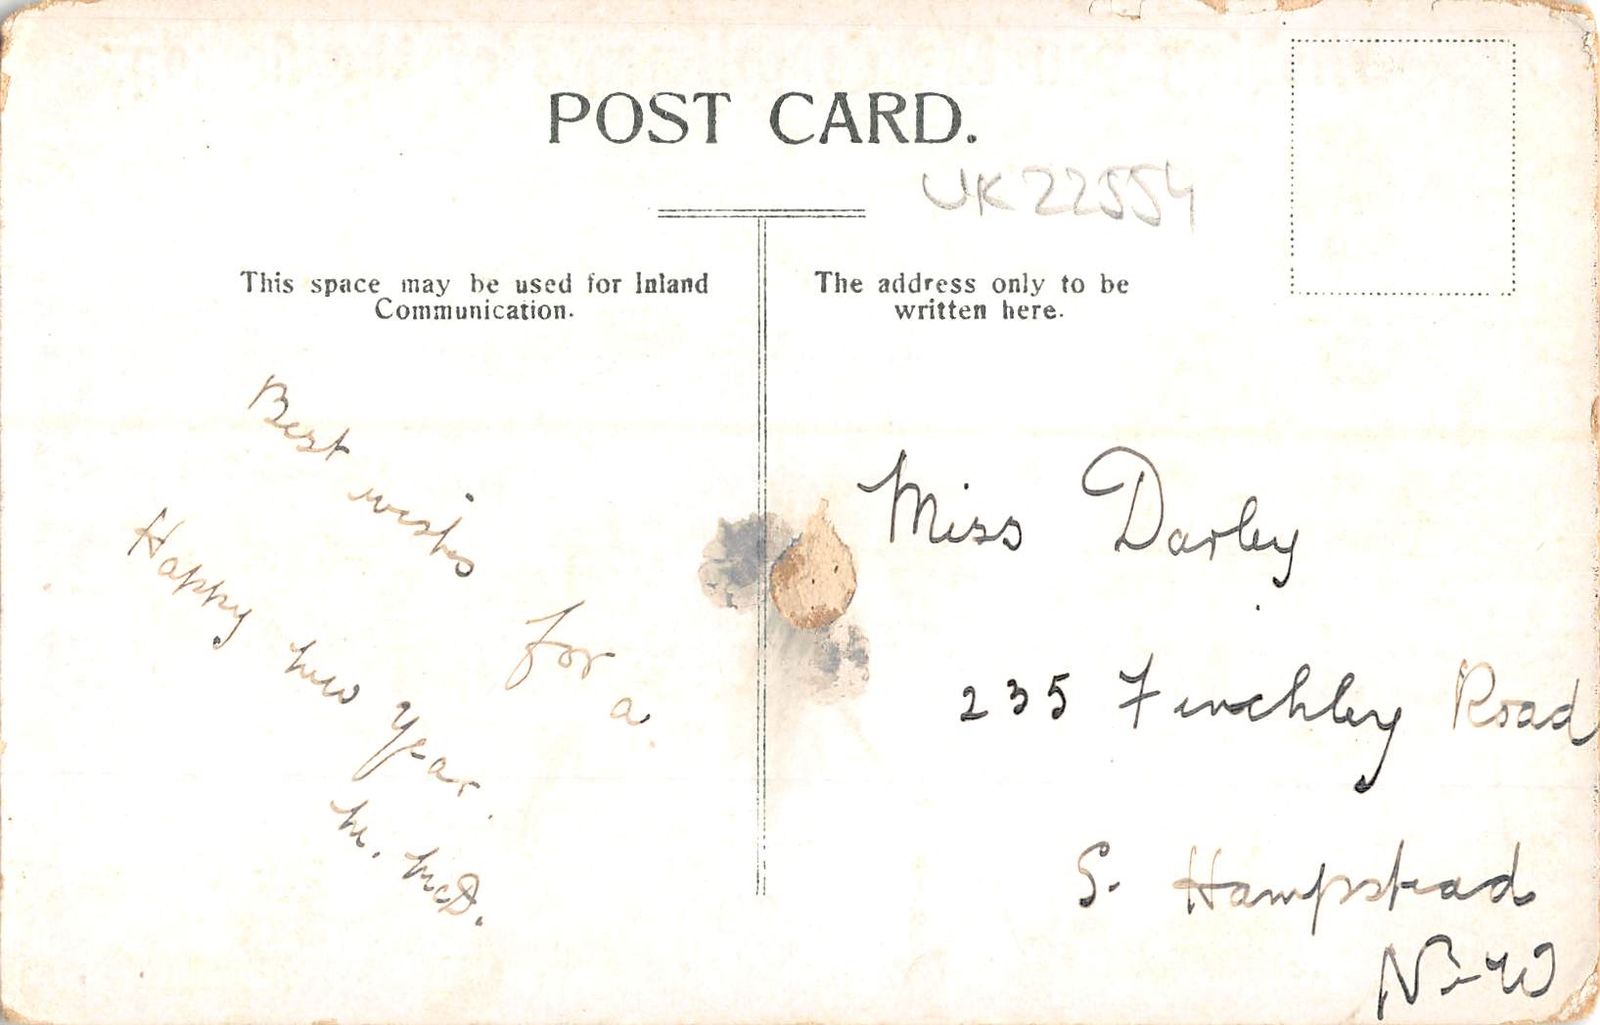 POST CARD.
UK22554
This space may be used for Inland
Communication.
The address only to be
written here.
Best wishes for a
Happy new year.
M. McD.
Miss Darley
235 Finchley Road
S. Hampstead
N.W